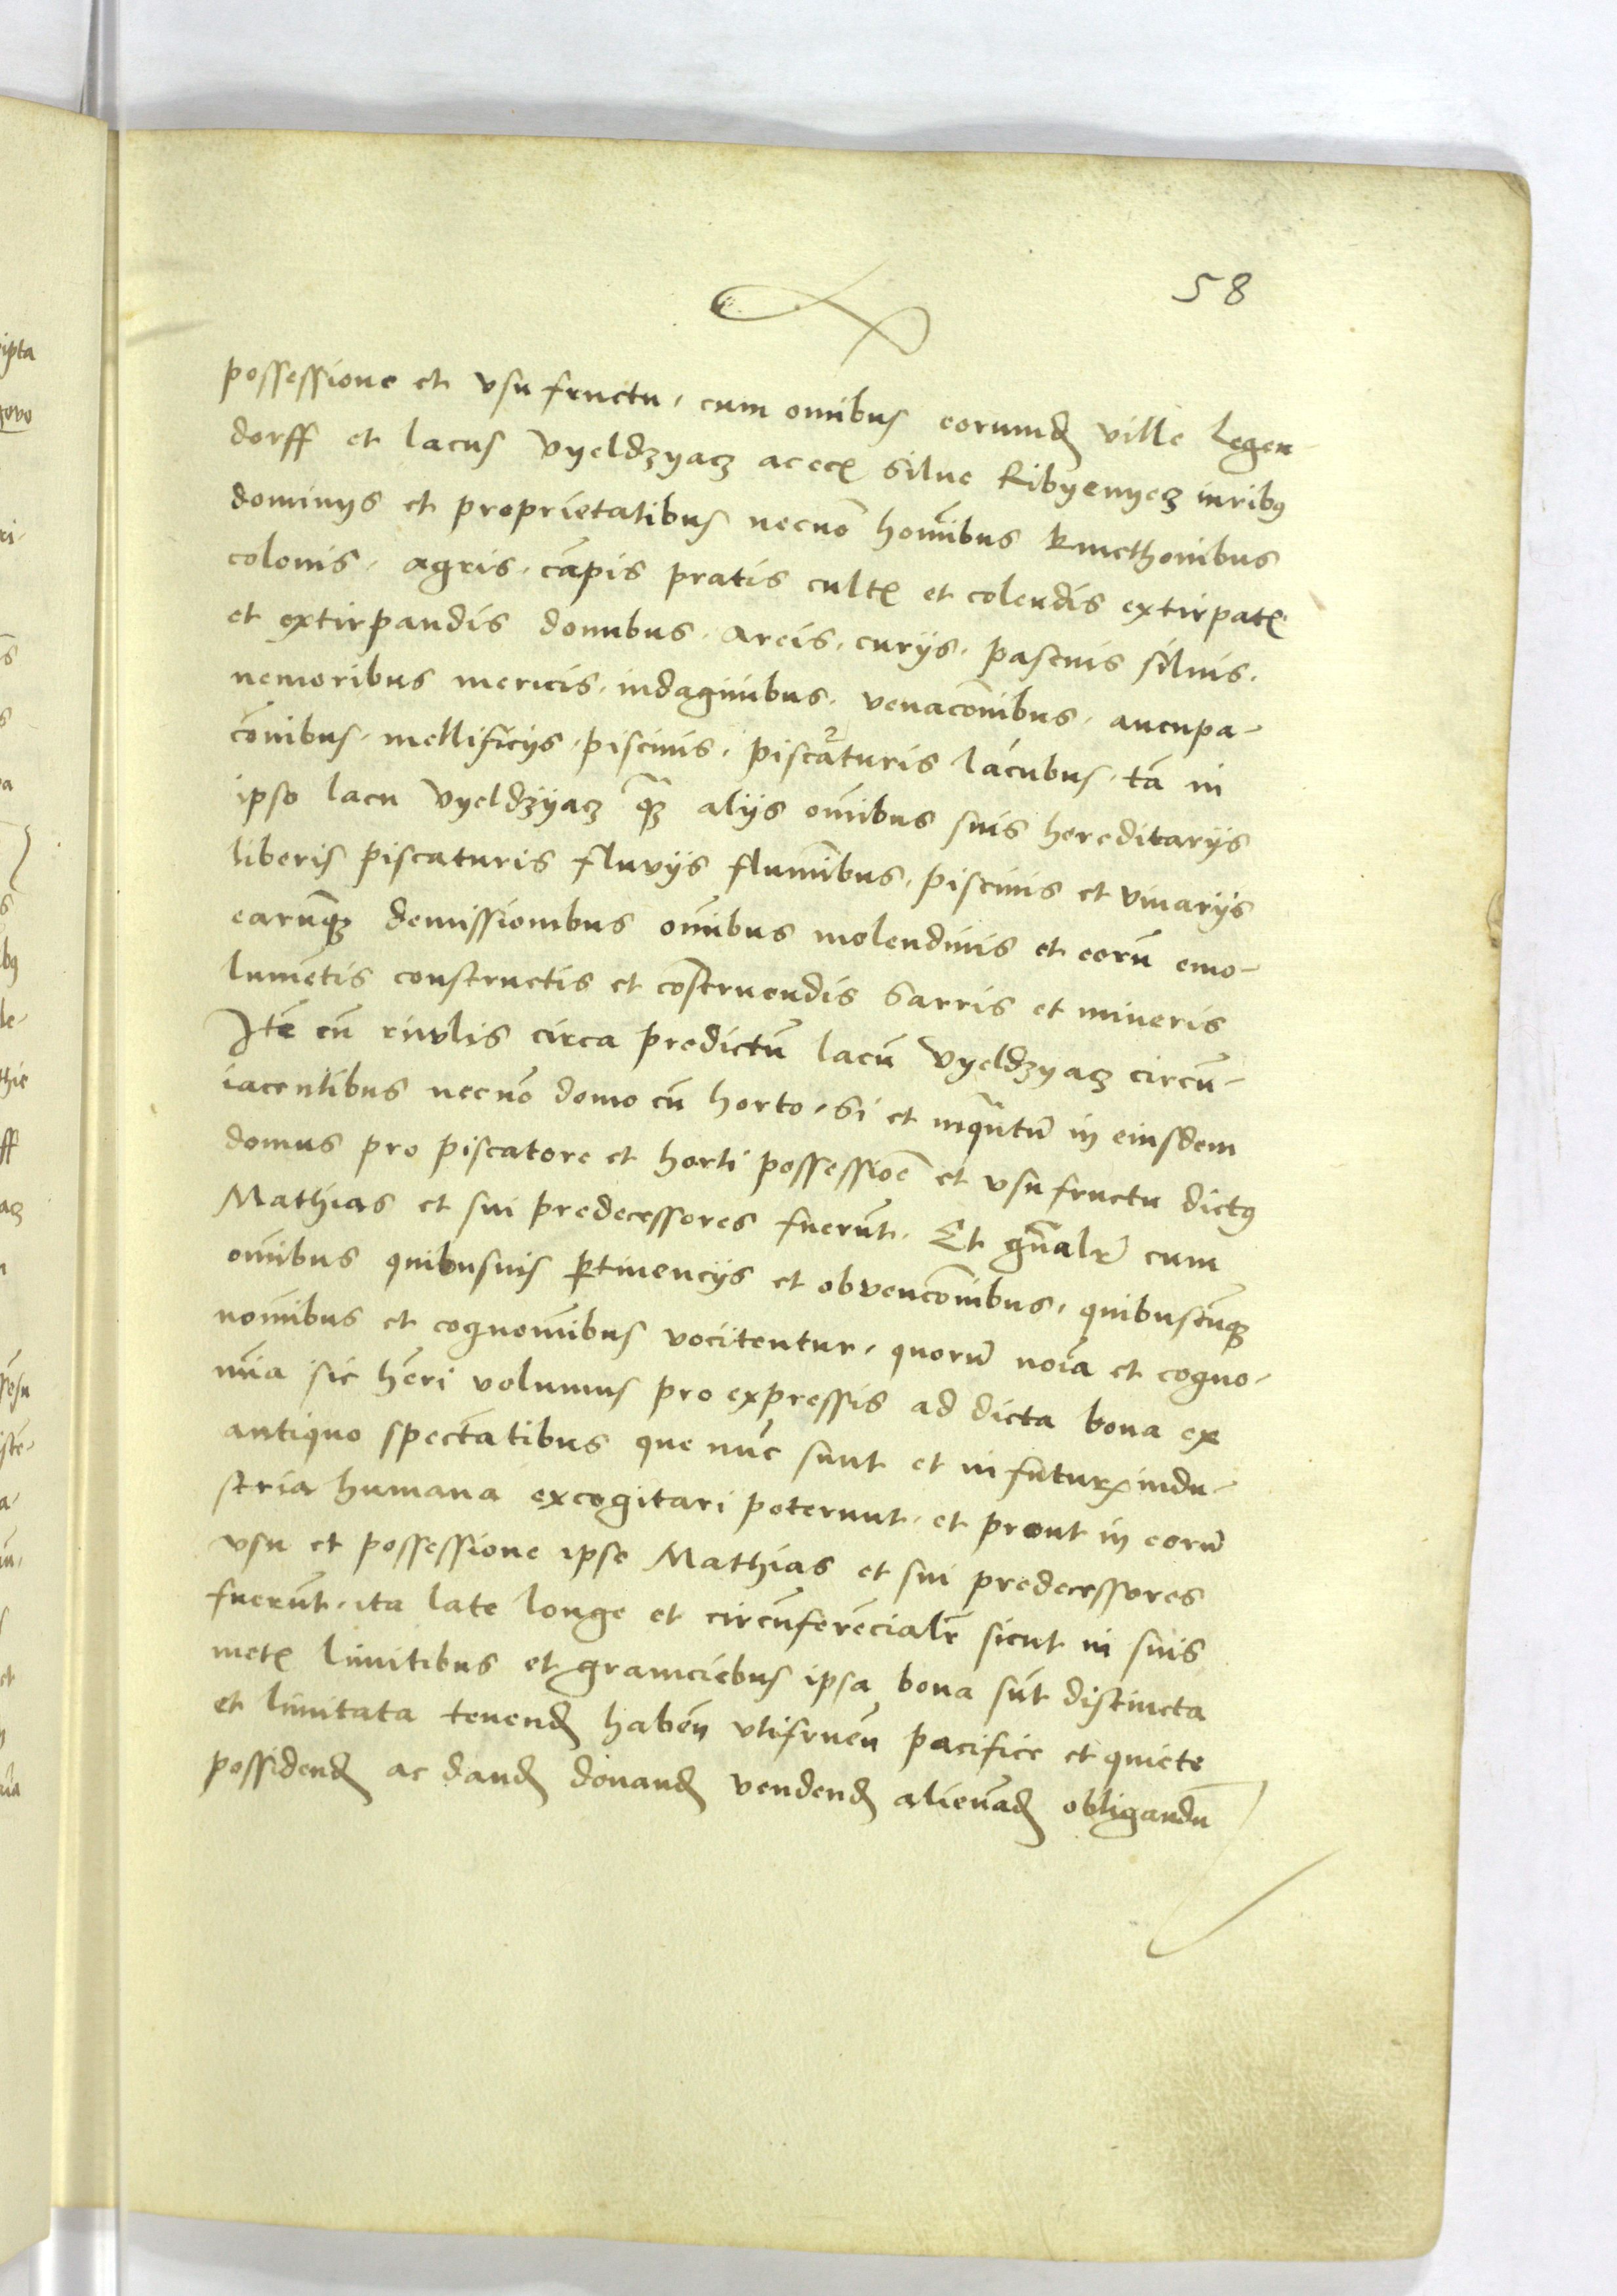 58
possessione et vsufructu, cum omībus eorumdꝫ ville Legen-
dorff et lacus Vyeldzyacz acecꝭ silue Ribyenyecz iuribꝯ
dominijs et proprietatibus necnō homībus kmethonibus
colonis, agris, cāpis pratis cultꝭ et colendis extirpatꝭ
et extirpandis domibus, areis, curijs, pascuis siluis,
nemoribus mericis, indaginibus, venacōnibus, aucupa-
cōnibus, mellificijs, piscinis, piscaturis lacubus, tā in
ipso lacu Vyeldzyacz q̄ꝫ alijs omībus suis hereditarijs
liberis piscaturis fluvijs flumībus, piscinis et viuarijs
earūqꝫ demissionibus omībus molendinis et eorū emo-
lumētis constructis et cōstruendis Sarris et mineris
Itē cū riuulis circa predictū lacū Vyeldzyacz circū-
iacentibus necnō domo cū horto, Si et inquātū in eiusdem
domus pro piscatore et horti possessiōe et vsufructu dictꝯ
Mathias et sui predecessores fuerūt. Et gn̄alr̄ cum
omībus quibusuis ꝑtinencijs et obvencōnibus, quibuscūqꝫ
nomībus et cognomībus vocitentur, quorū noīa et cogno-
mīa sic hēri volumus pro expressis ad dicta bona ex
antiquo spectātibus que nūc sunt et in futurꝭ indu-
stria humana excogitari poterunt, et prout in eorū
vsu et possessione ipse Mathias et sui predecessores
fuerūt, ita late longe et circūferēcialr̄ sicut in suis
metꝭ limitibus et graniciebus ipsa bona sūt distincta
et limitata tenendꝫ habēn vtifruēn pacifice et quiete
possidendꝫ ac dandꝫ donandꝫ vendendꝫ alienādꝫ obligandū